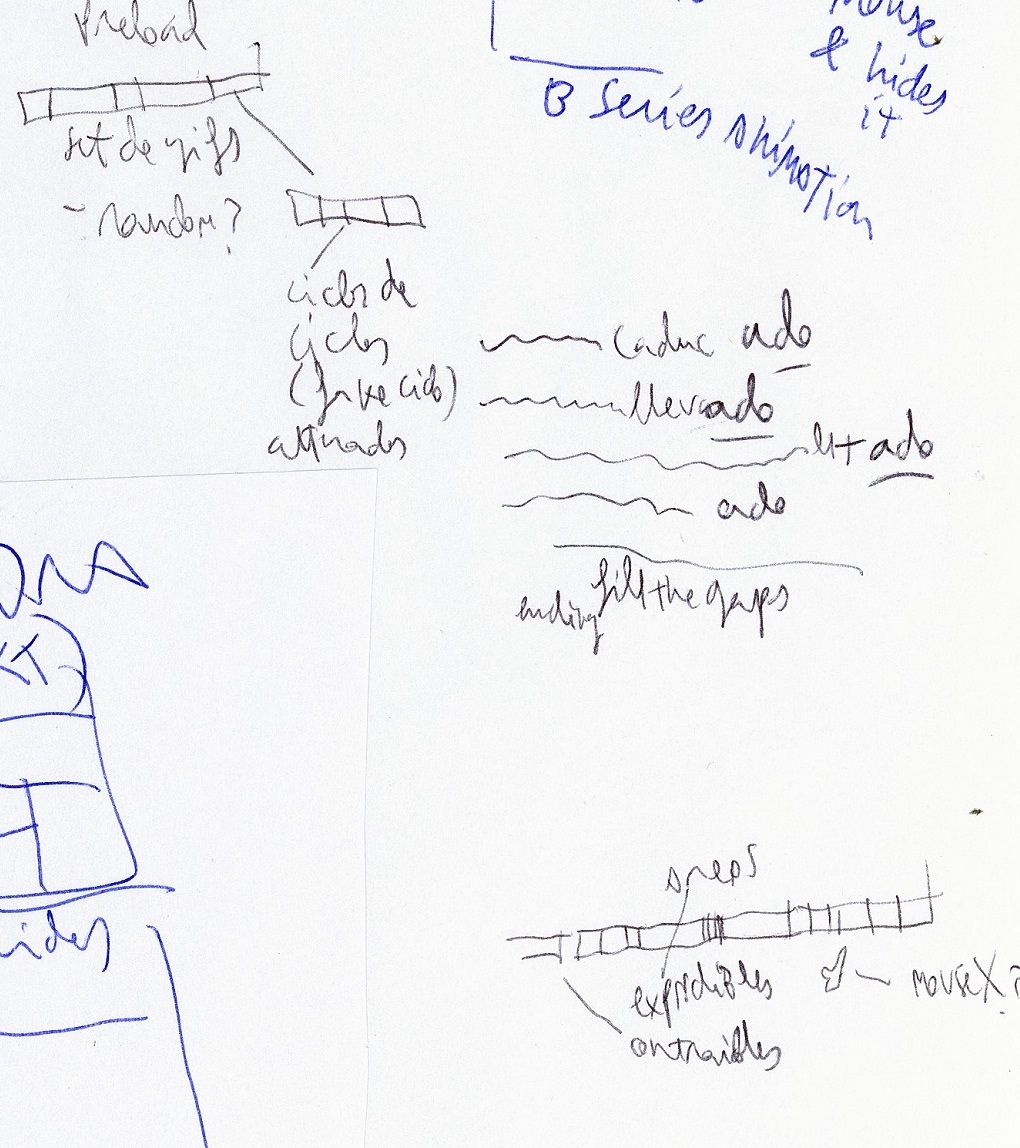 Preload
set de gifs
- random?
ciclos de
ciclos
(fake ciclo)
mouse
& hides
it
B Series animation
caduc ado
llevado
ado
ado
ending fill the gaps
areas
expandibles
contraibles
mouseX?